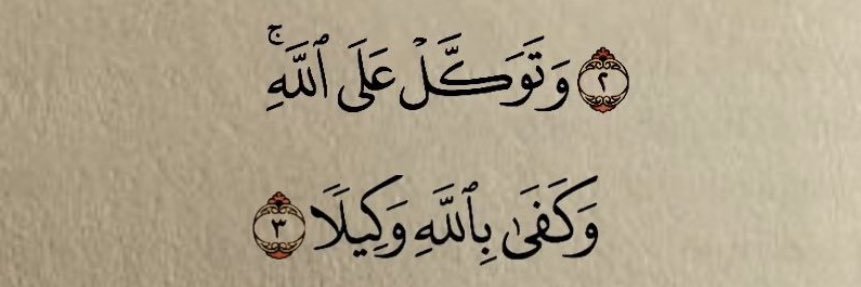 ٢ وَتَوَكَّلۡ عَلَى ٱللَّهِۚ
وَكَفَىٰ بِٱللَّهِ وَكِيلٗا ٣